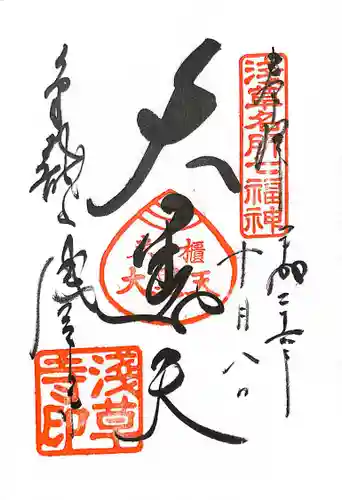 浅草名所七福神
奉拝
平成二十
十月八日
大黒天
米櫃
大黒天
金龍山
浅草寺
淺草寺印